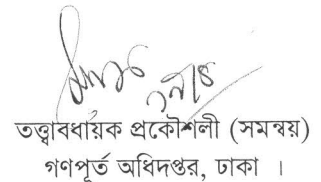 তত্ত্বাবধায়ক প্রকৌশলী (সমন্বয়)
গণপূর্ত অধিদপ্তর, ঢাকা ।